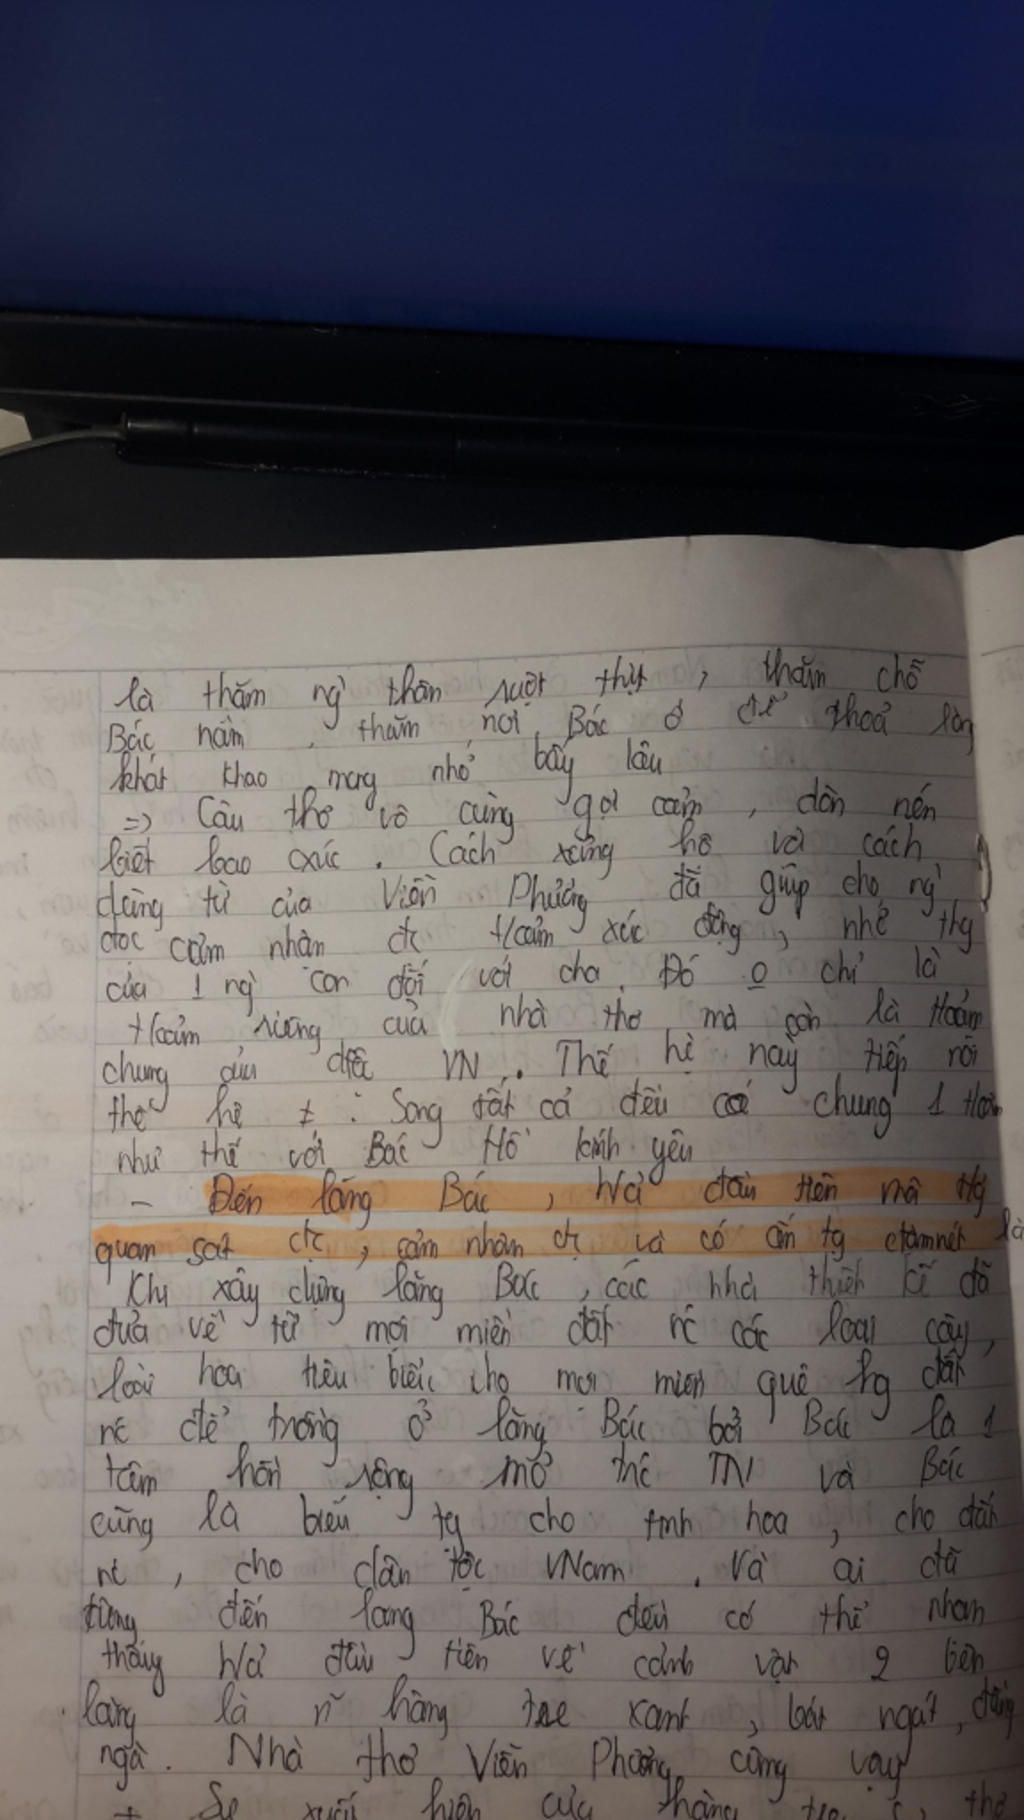 là thăm ng` thân ruột thịt, thăm chỗ
Bác nằm, thăm nơi Bác ở để thoả lòng
khát khao mong nhớ bấy lâu
=> Câu thơ vô cùng gợi cảm, dồn nén
biết bao cxúc. Cách xưng hô và cách
dùng từ của Viễn Phương đã giúp cho ng`
đọc cảm nhận đc t/cảm xúc động, nhớ thg
của 1 ng` con đối với cha. Đó o chỉ là
t/cảm riêng của nhà thơ mà còn là t/cảm
chung của dtộc VN. Thế hệ này tiếp nối
thế hệ ≠. Song tất cả đều có chung 1 t/cảm
như thế với Bác Hồ kính yêu
- Đến lăng Bác, h/ả đầu tiên mà tg
quan sát đc, cảm nhận đc và có ấn tg đậm nét là
Khi xây dựng lăng Bác, các nhà thiết kế đã
đưa về từ mọi miền đất nc các loại cây,
loài hoa tiêu biểu cho mọi miền quê hg đất
nc để trồng ở lăng Bác bởi Bác là 1
tâm hồn rộng mở trc TN và Bác
cũng là biểu tg cho tinh hoa, cho đất
nc, cho dân tộc VNam. Và ai đã
từng đến lăng Bác đều có thể nhận
thấy h/ả đầu tiên về cảnh vật 2 bên
lăng là n~ hàng tre xanh, bát ngát, đằng
ngà. Nhà thơ Viễn Phương cũng vậy
+ Sự xuất hiện của hàng tre